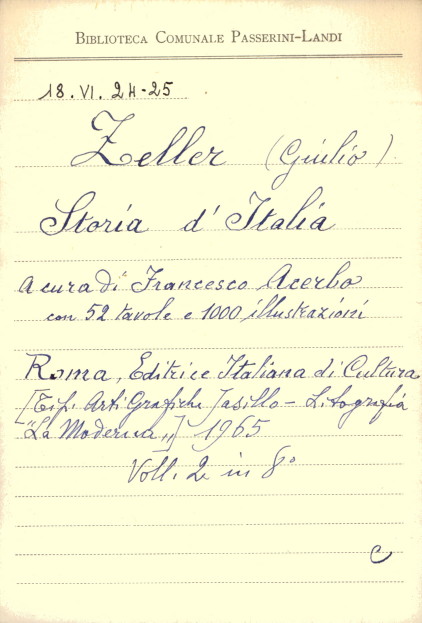 BIBLIOTECA COMUNALE PASSERINI-LANDI
18. VI. 24-25
Zeller (Giulio)
Storia d'Italia
A cura di Francesco Acerbo
con 52 tavole e 1000 illustrazioni
Roma, Editrice Italiana di Cultura
[Tip. Arti Grafiche Jasillo - Litografia
"La Moderna"] 1965
Voll. 2 in 8°
C